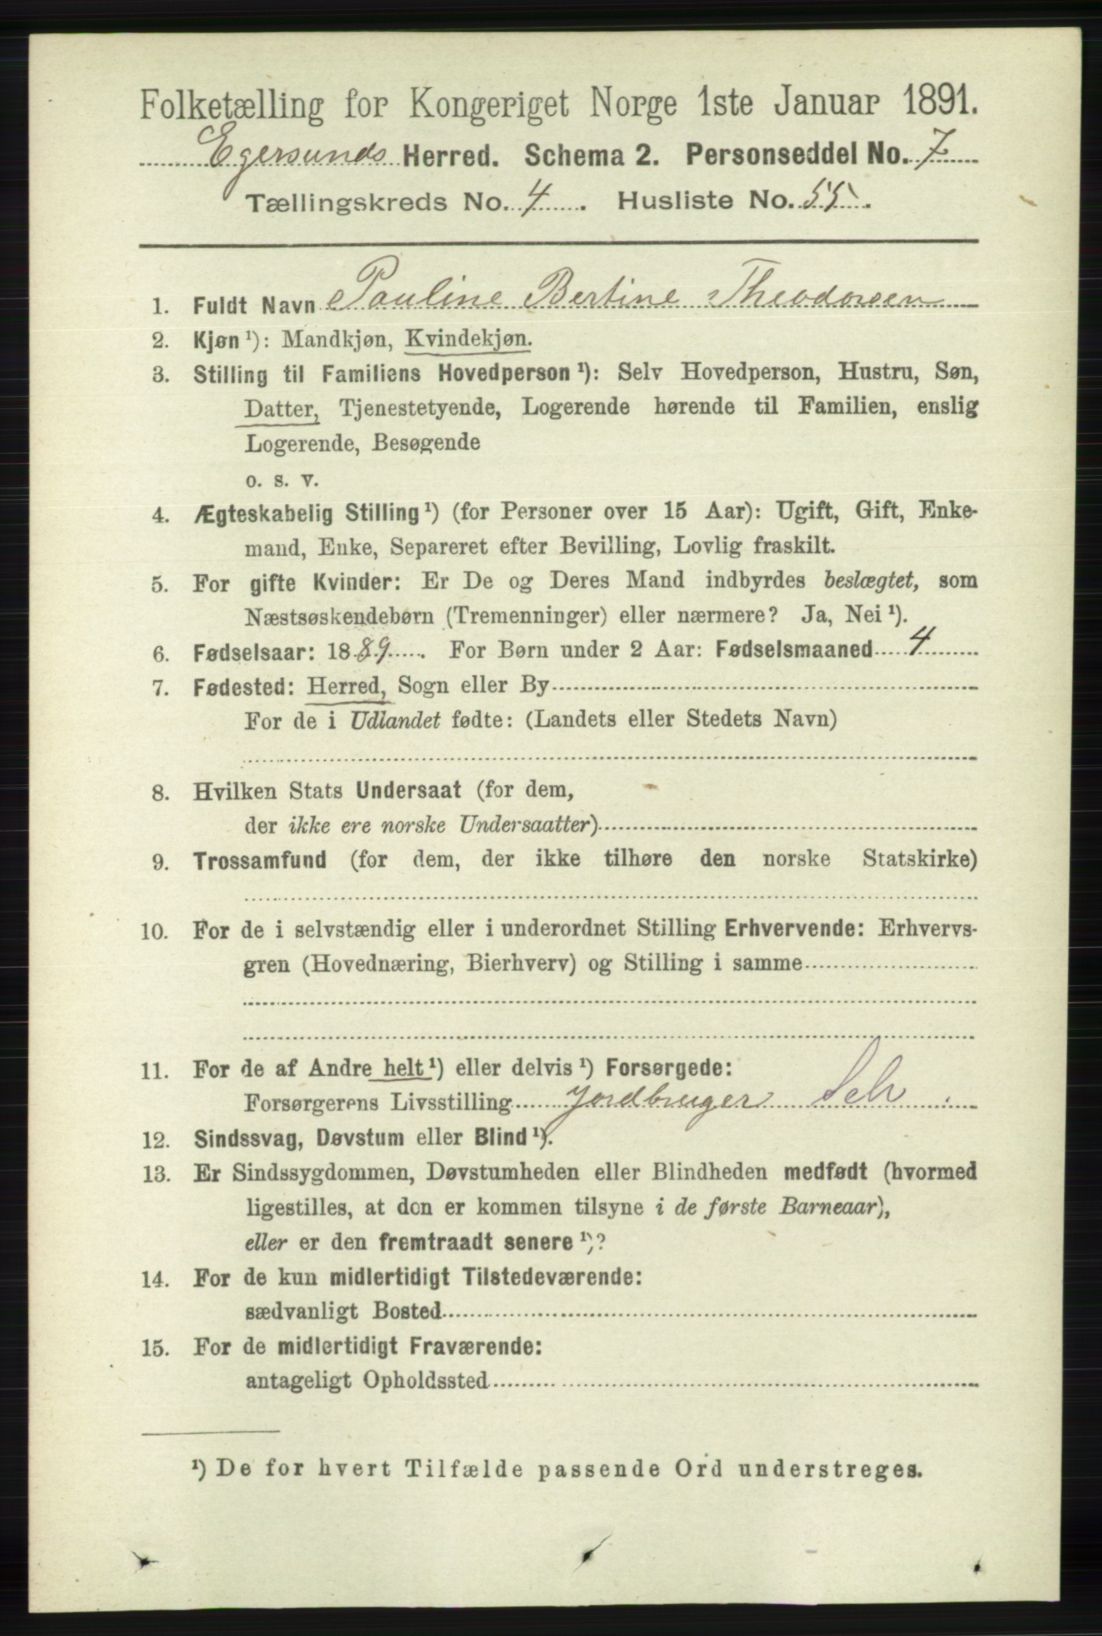 Folketælling for Kongeriget Norge 1ste Januar 1891.
Egersunds Herred. Schema 2. Personseddel No. 7
Tællingskreds No. 4. Husliste No. 55.
1. Fuldt Navn Pauline Bertine Theodorsen
2. Kjøn ¹): Mandkjøn, Kvindekjøn.
3. Stilling til Familiens Hovedperson ¹): Selv Hovedperson, Hustru, Søn,
Datter, Tjenestetyende, Logerende hørende til Familien, enslig
Logerende, Besøgende
o. s. v.
4. Ægteskabelig Stilling ¹) (for Personer over 15 Aar): Ugift, Gift, Enke-
mand, Enke, Separeret efter Bevilling, Lovlig fraskilt.
5. For gifte Kvinder: Er De og Deres Mand indbyrdes beslægtet, som
Næstsøskendebørn (Tremenninger) eller nærmere? Ja, Nei ¹).
6. Fødselsaar: 1889. For Børn under 2 Aar: Fødselsmaaned 4
7. Fødested: Herred, Sogn eller By
For de i Udlandet fødte: (Landets eller Stedets Navn)
8. Hvilken Stats Undersaat (for dem,
der ikke ere norske Undersaatter)
9. Trossamfund (for dem, der ikke tilhøre den norske Statskirke)
10. For de i selvstændig eller i underordnet Stilling Erhvervende: Erhvervs-
gren (Hovednæring, Bierhverv) og Stilling i samme
11. For de af Andre helt ¹) eller delvis ¹) Forsørgede:
Forsørgerens Livsstilling Jordbruger Selv
12. Sindssvag, Døvstum eller Blind ¹).
13. Er Sindssygdommen, Døvstumheden eller Blindheden medfødt (hvormed
ligestilles, at den er kommen tilsyne i de første Barneaar),
eller er den fremtraadt senere ¹)?
14. For de kun midlertidigt Tilstedeværende:
sædvanligt Bosted
15. For de midlertidigt Fraværende:
antageligt Opholdssted
¹) De for hvert Tilfælde passende Ord understreges.